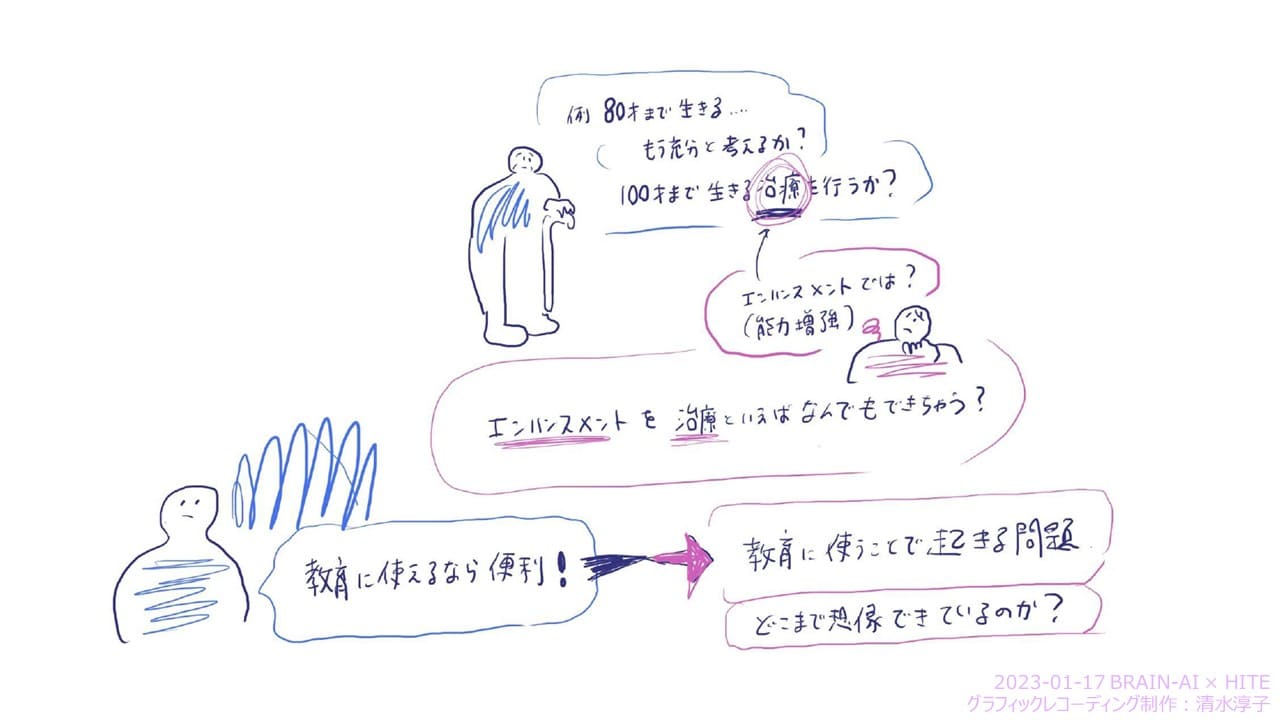 例 80才まで生きる....
もう充分と考えるか?
100才まで生きる治療を行うか?
エンハンスメントでは?
(能力増強)
エンハンスメントを治療といえばなんでもできちゃう?
教育に使えるなら便利!
教育に使うことで起きる問題
どこまで想像できているのか?
2023-01-17 BRAIN-AI × HITE
グラフィックレコーディング制作:清水淳子